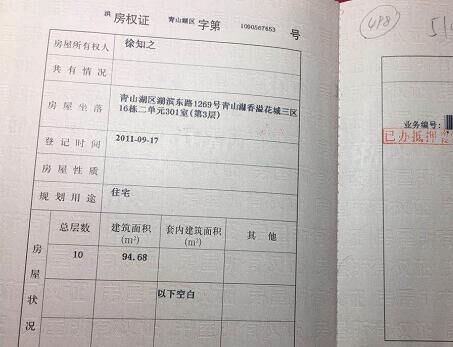 洪 房权证 青山湖区 字第 1000567653 号
房屋所有权人 徐知之
共有情况
房屋坐落 青山湖区湖滨东路1269号青山湖香溢花城三区
16栋二单元301室(第3层)
登记时间 2011-09-17
房屋性质
规划用途 住宅
房屋状况
总层数 建筑面积 套内建筑面积 其他
(m²) (m²)
10 94.68
以下空白
498
业务编号:
已办抵押